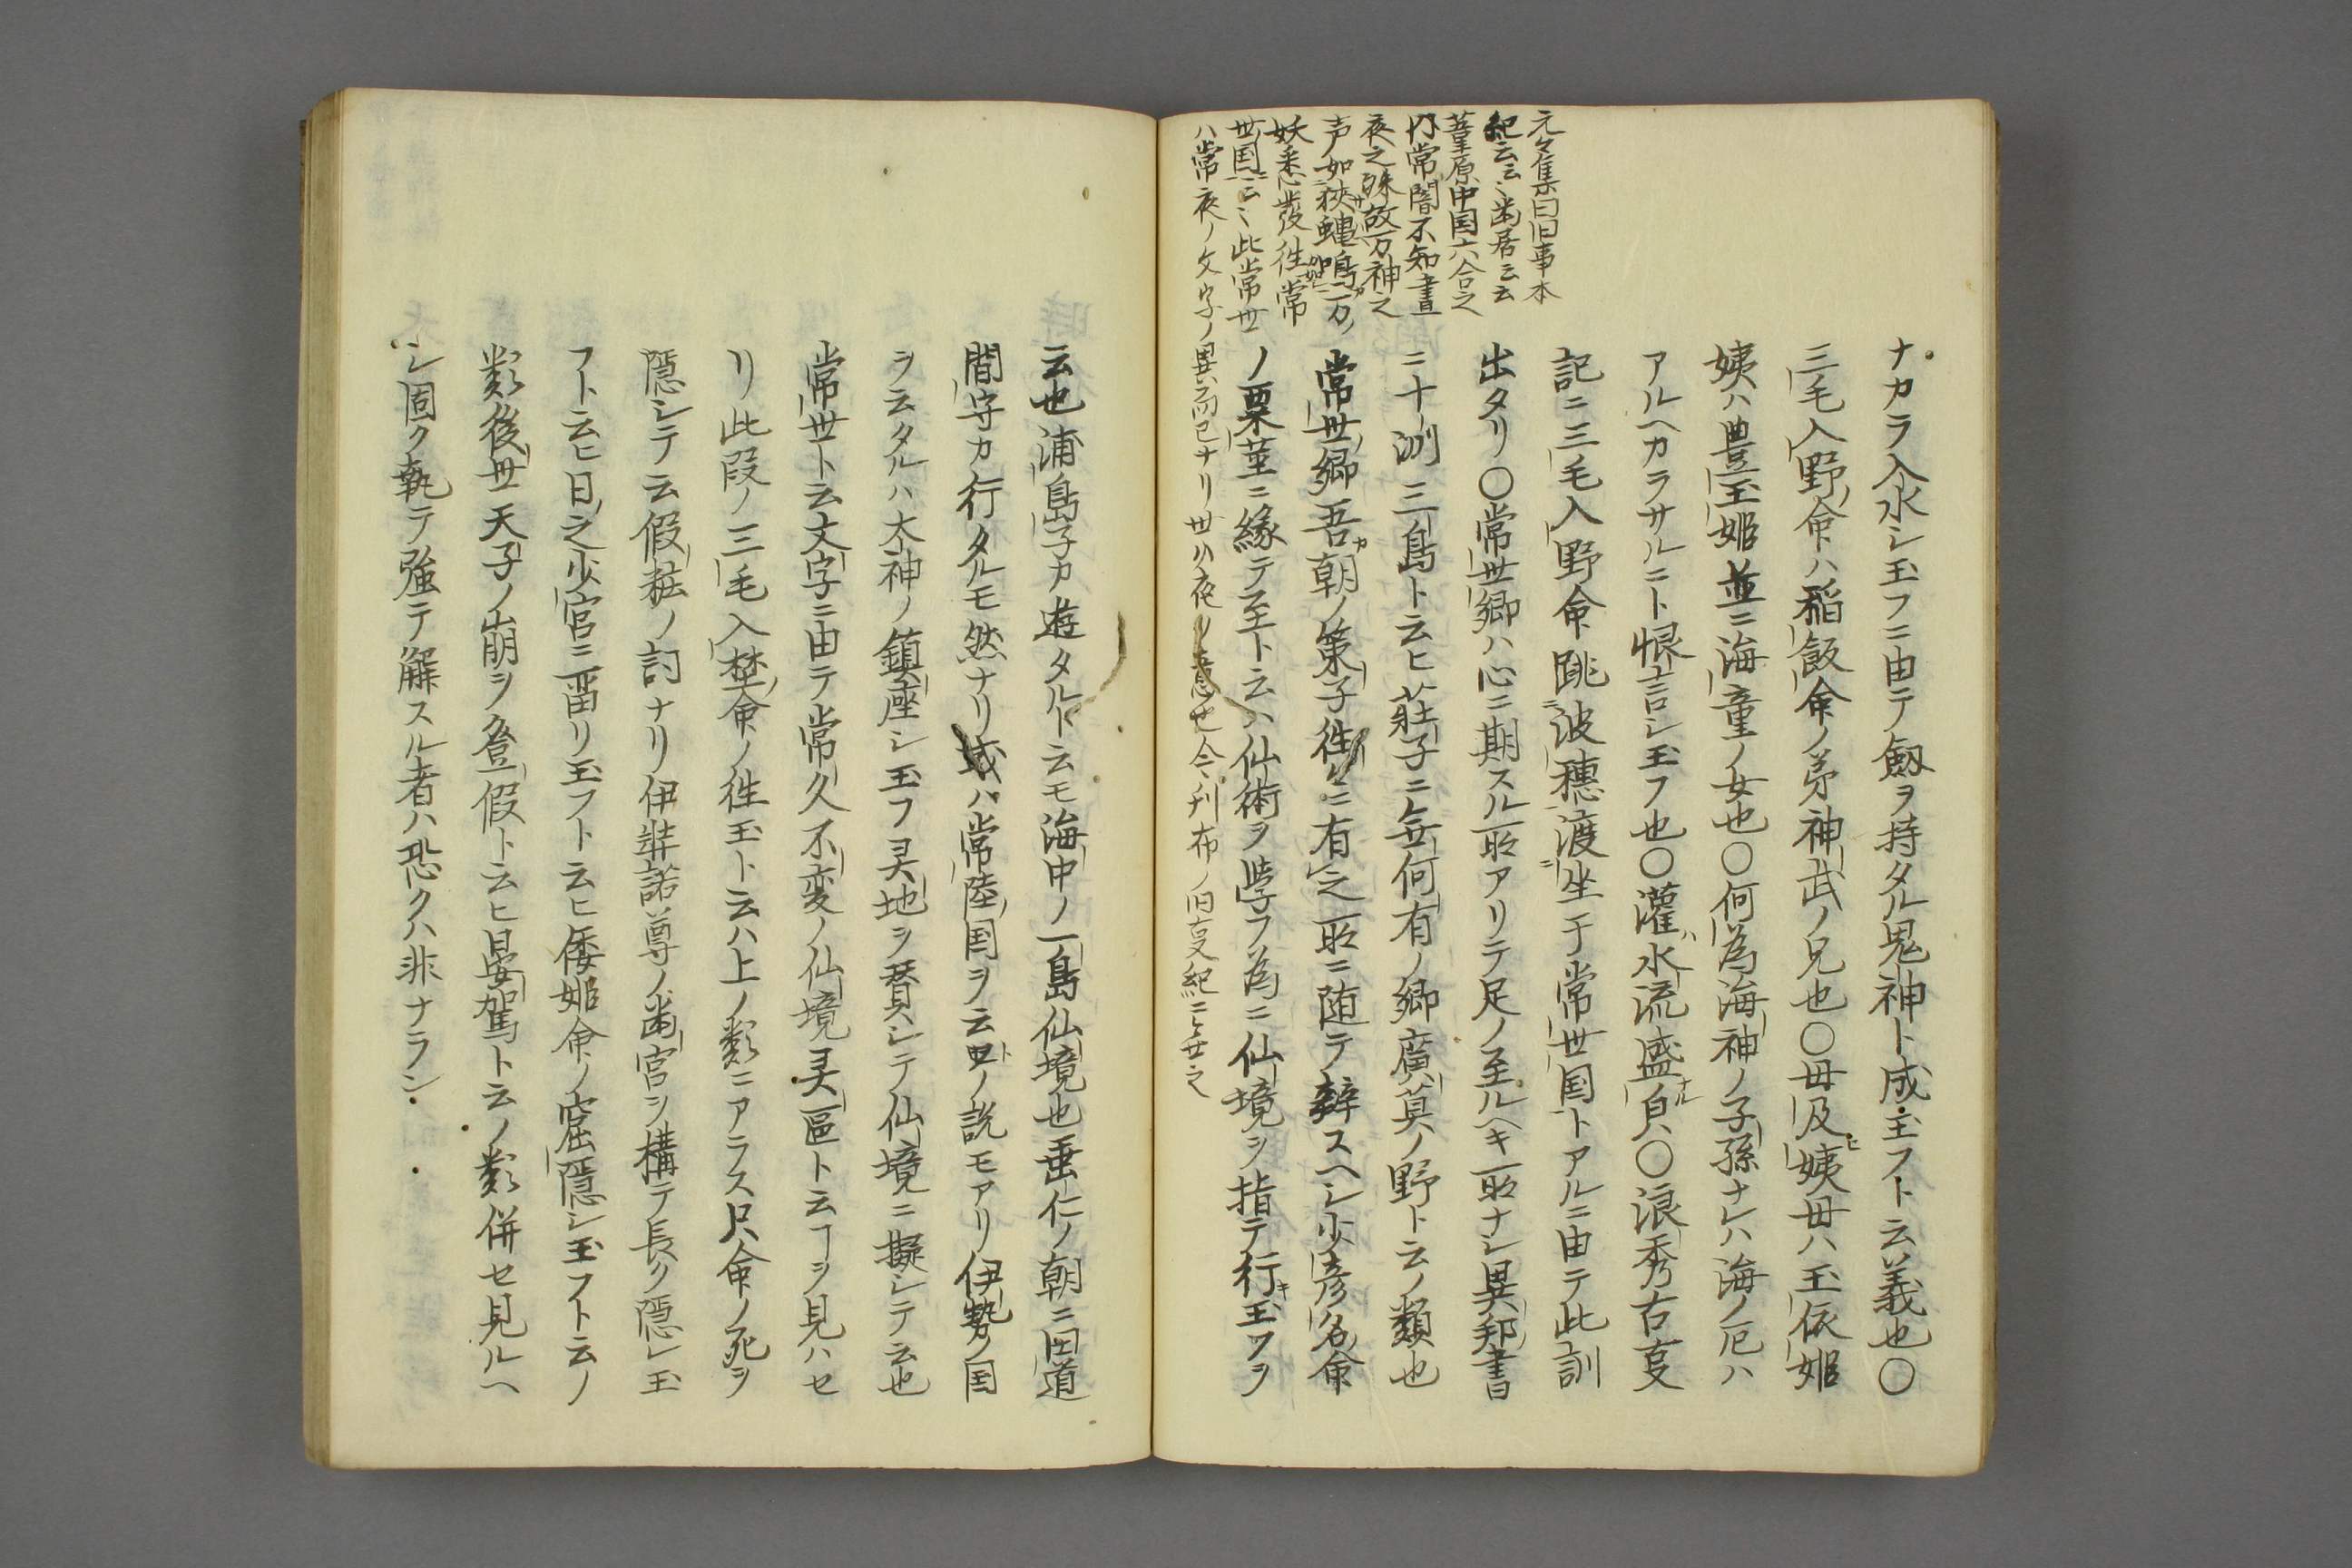 元々集曰旧事本
紀云云ミ幽居云云
葦原中国六合之
内常闇不知晝
夜之殊故万神之
声ノ如狹蠅鳴万ノ
妖悉發往常
世国ニ云ミ此常世
ハ常夜ノ文字ノ異ル而已ナリ世ハ夜ノ意也今刊布ノ旧叓紀ニ無之
ナカラ入水シ玉フニ由テ劔ヲ持タル鬼神ト成玉フト云義也〇
三毛入野命ハ稲飯命ノ弟神武ノ兄也〇母及姨母ハ玉依姫
姨ハ豊玉姫並ニ海童ノ女也〇何為海神ノ子孫ナレハ海ノ厄ハ
アルヘカラサルニト恨言シ玉フ也〇灌水流盛皃〇浪秀古叓
記ニ三毛入野命跳波穗渡坐于常世国トアルニ由テ此訓
出タリ〇常世郷ハ心ニ期スル所アリテ足ノ至ルヘキ所ナシ異邦書
ニ十洲三島ト云ヒ莊子ニ無何有ノ郷廣莫ノ野ト云ノ類也
常世郷吾朝ノ策子往々ニ有之所ニ随テ辨スヘシ少彦名命
ノ粟莖ニ縁テ至ト云ハ仙術ヲ學フ為ニ仙境ヲ指テ行玉フヲ
云也浦島子カ遊タルト云モ海中ノ一島仙境也垂仁ノ朝ニ田道
間守カ行タルモ然ナリ或ハ常陸国ヲ云ノ説モアリ伊勢ノ国
ヲ云タルハ太神ノ鎮座シ玉フ灵地ヲ賛シテ仙境ニ擬シテ云也
常世ト云文字ニ由テ常久不変ノ仙境灵區ト云ヿヲ見ハセ
リ此段ノ三毛入埜命ノ往玉ト云ハ上ノ類ニアラス只命ノ死ヲ
隠シテ云假粧ノ詞ナリ伊弉諾尊ノ幽宮ヲ構テ長ク隠レ玉
フト云ヒ日之少宮ニ畄リ玉フト云ヒ倭姫命ノ窟隠シ玉フト云ノ
類後世天子ノ崩ヲ登假ト云ヒ晏駕ト云ノ類併セ見ルヘ
シ固ク執テ強テ解スル者ハ恐クハ非ナラン